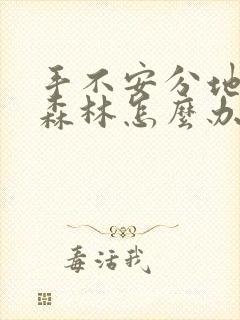 手不安分地
森林怎麼办
毒活我